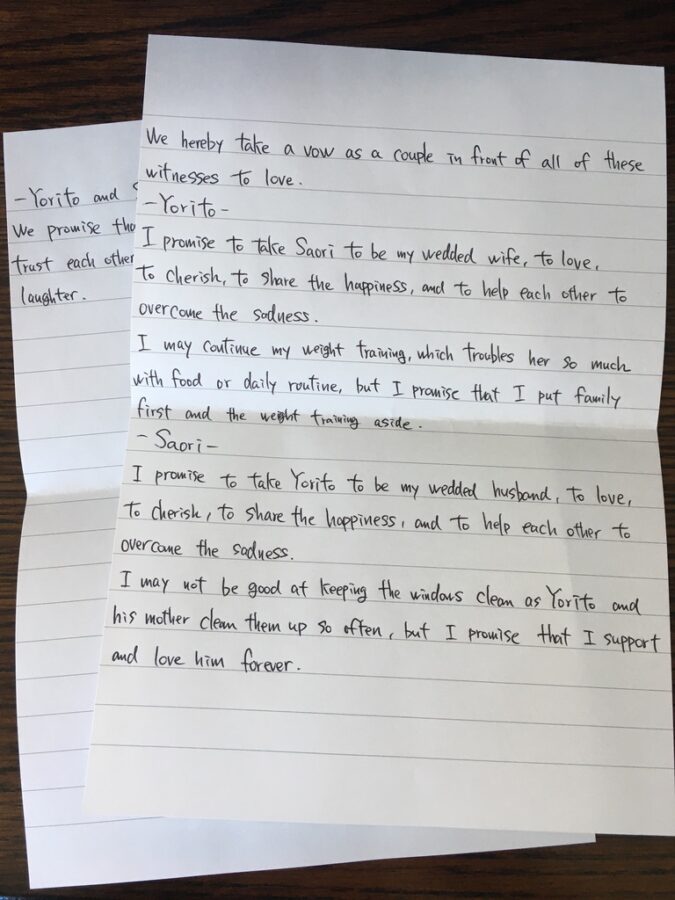 We hereby take a vow as a couple in front of all of these
witnesses to love.
-Yorito-
I promise to take Saori to be my wedded wife, to love,
to cherish, to share the happiness, and to help each other to
overcome the sadness.
I may continue my weight training, which troubles her so much
with food or daily routine, but I promise that I put family
first and the weight training aside.
-Saori-
I promise to take Yorito to be my wedded husband, to love,
to cherish, to share the happiness, and to help each other to
overcome the sadness.
I may not be good at keeping the windows clean as Yorito and
his mother clean them up so often, but I promise that I support
and love him forever.
-Yorito and
We promise
trust each other
laughter.